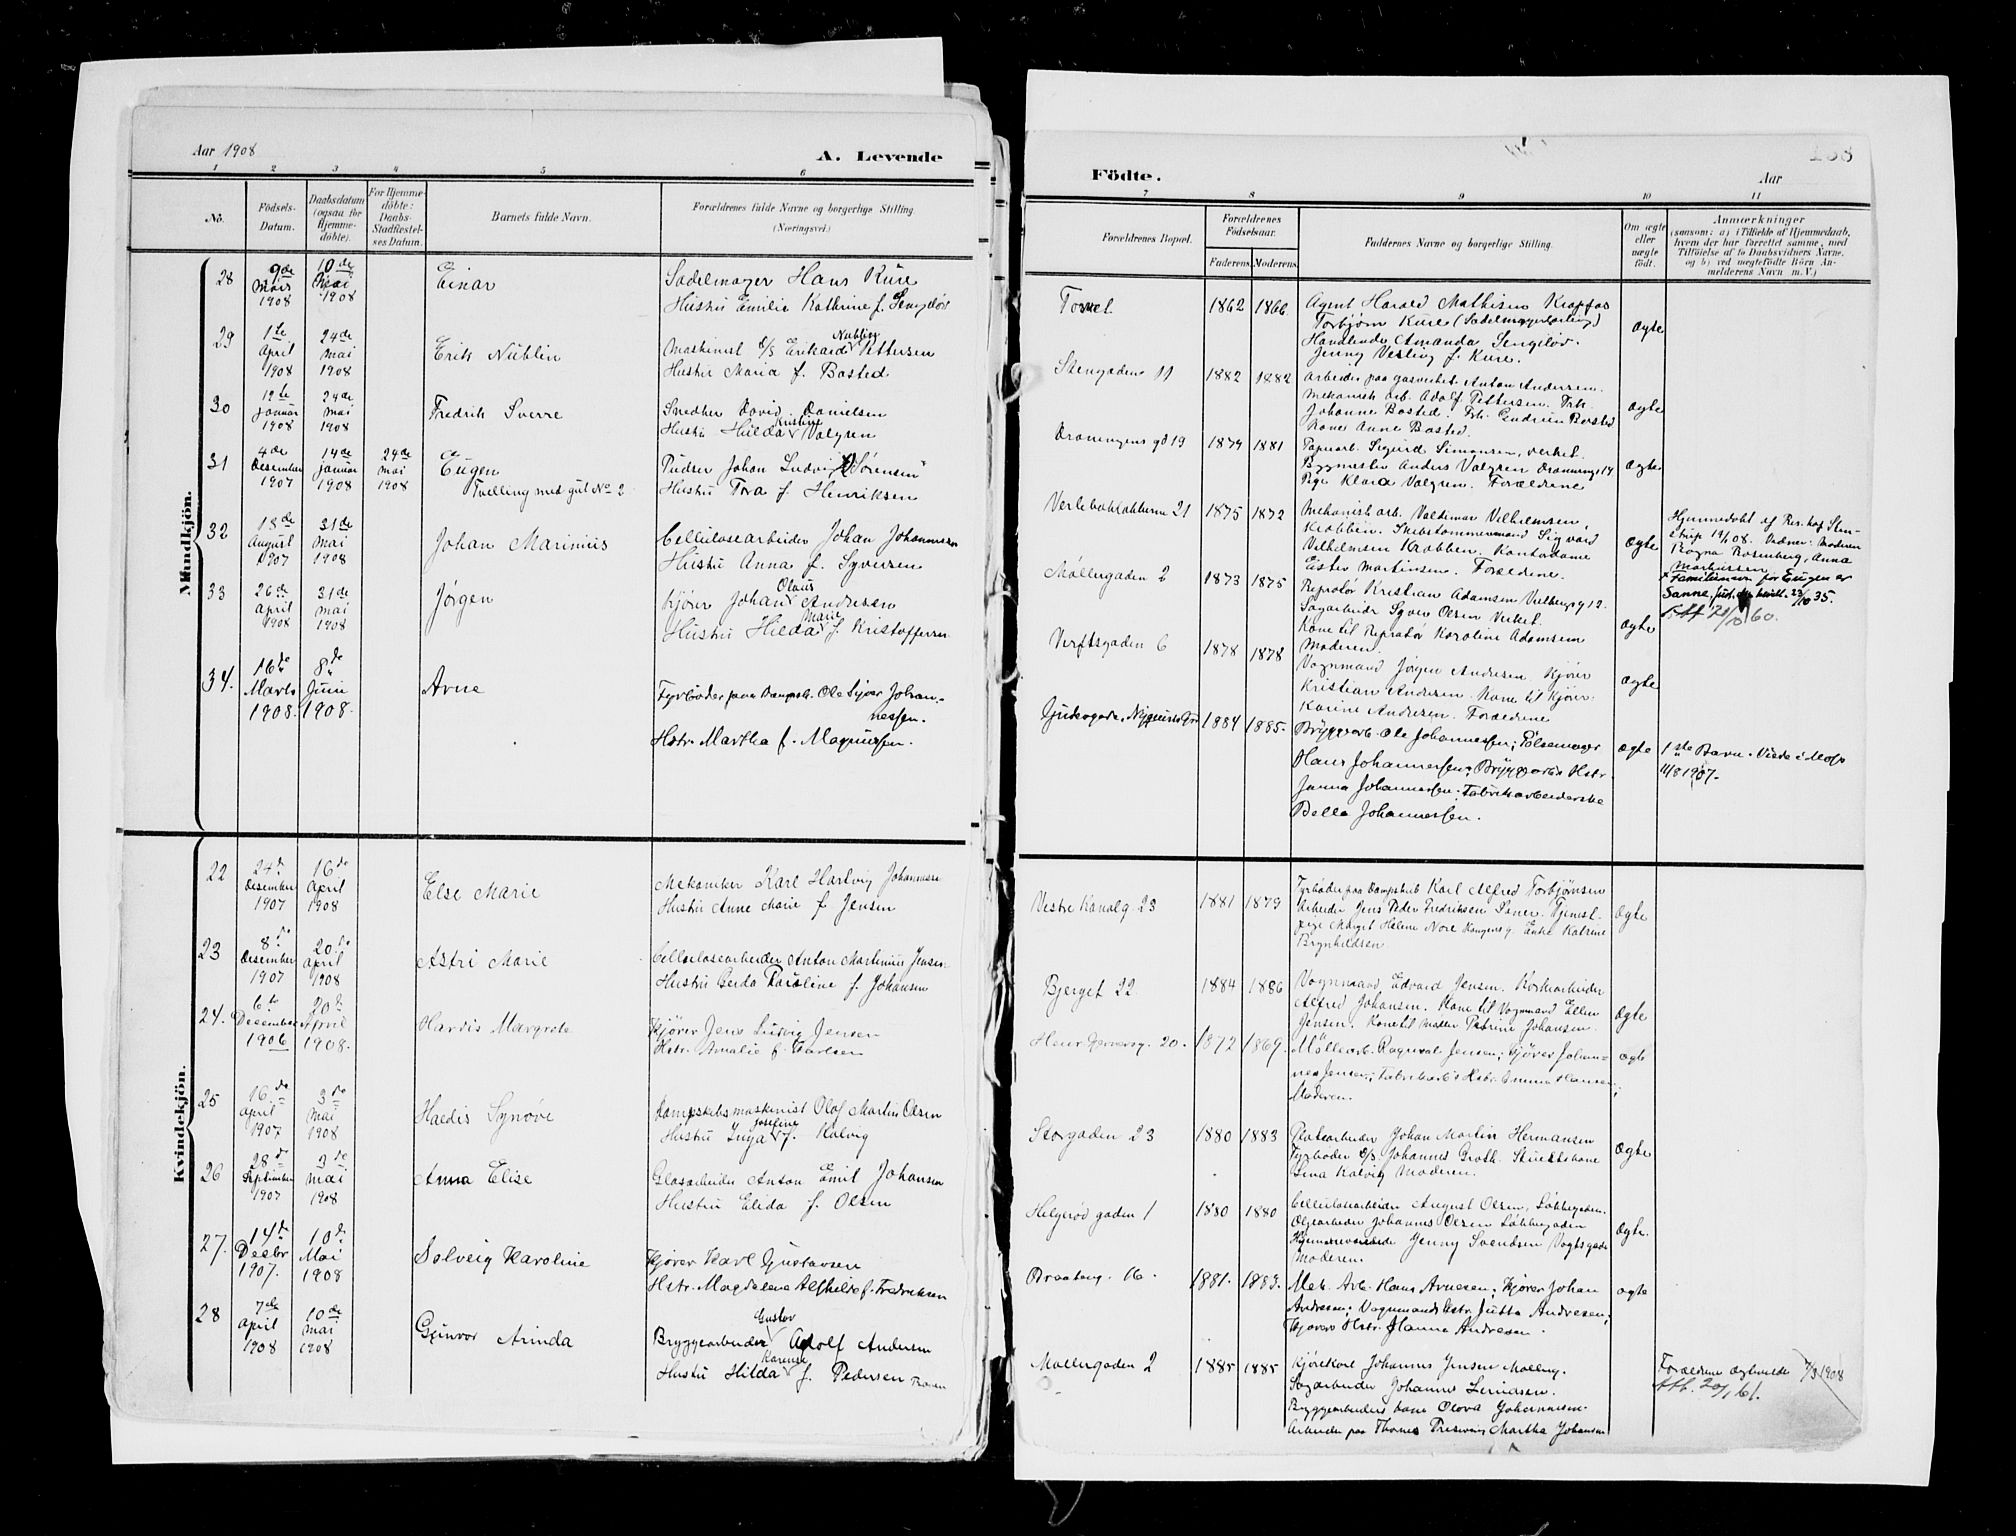 Aar 1908
A. Levende
1 2 3 4 5 6
No.
Födsels-
Datum.
Daabsdatum
(ogsaa for
Hjemme-
döbte).
For Hjemme-
döbte:
Daabs-
Stadfæstel-
ses Datum.
Barnets fulde Navn.
Forældrenes fulde Navne og borgerlige Stilling.
(Næringsvei.)
Mandkjön.
28
9de
Mars
1908
10de
Mai
1908
Einar
Sadelmager Hans Kure
Hustru Emilie Kathrine f. Sengeløv
29
1te
April
1908
24de
Mai
1908
Erik Nüblin
Nüblin
Maskinist d/s Erikard Pettersen
Hustru Maria f. Basted
30
12te
Januar
1908
24de
Mai
1908
Fredrik Sverre
Snedker David Danielsen
Kristine
Hustru Hilda Valgren
31
4de
Desember
1907
14de
Januar
1908
24de
Mai
1908
Eugen
Tvilling med gut No 2
Pudser Johan Ludvig Sørensen
Hustru Tora f. Henriksen
32
18de
August
1907
31de
Mai
1908
Johan Marinius
Cellulosearbeider Johan Johannessen
Hustru Anna f. Syversen
33
26de
April
1908
31de
Mai
1908
Jørgen
Olaus
Kjører Johan Andresen
Marie
Hustru Hilda f. Kristoffersen
34.
16de
Marts
1908.
8de
Juni
1908.
Arne
Fyrbøder paa Dampsk. Ole Sijver Johan-
nessen.
Hstr. Martha f. Magnussen.
Kvindekjön.
22
24de
Desember
1907
16de
April
1908
Else Marie
Mekaniker Karl Hartvig Johannesen
Hustru Anne Marie f. Jensen
23
8de
Desember
1907
20de
April
1908
Astri Marie
Cellulosearbeider Anton Martinius Jensen
Hustru Gerda Karoline f. Johansen
24.
6te
December
1906
20de
April
1908.
Hardis Margrete
Kjører Jens Ludvig Jensen
Hstr. Amalie f. Karlsen
25
16de
April
1907
3de
Mai
1908
Haldis Synøve
Dampskibsmaskinist Olaf Martin Olsen
Josefine
Hustru Inga f. Kalvig
26
28de
September
1907
3de
Mai
1908
Anna Elise
Glasarbeider Anton Emil Johansen
Hustru Elida f. Olsen
27.
14de
Decbr
1907.
10de
Mai
1908
Solveig Karoline
Kjører Karl Gustavsen
Hstr. Magdalene Alfhilde f. Fredriksen
28
7de
April
1908
10de
Mai
1908
Gunvor Arinda
Gustav
Bryggearbeider Adolf Andersen
Karense
Hustru Hilda f. Pedersen
Födte.
Aar
7 8 9 10 11
Forældrenes Bopæl.
Forældrenes
Födselsaar.
Faderens. Moderens.
Faddernes Navne og borgerlige Stilling.
Om ægte
eller
uægte
födt.
Anmærkninger
(saasom: a) i Tilfælde af Hjemmedaab,
hvem der har forrettet samme, med
Tilföielse af to Daabsvidners Navne,
og b) ved uegtefödte Börn An-
melderens Navn m. V.)
Torvet 1862 1866
Agent Harald Mathisen Krapfos
Torbjørn Kure (Sadelmagerlærling)
Handlende Amanda Sengeløv.
Jenny Vesting f. Kure.
Ægte
Stengaden 11 1882 1882
Arbeider paa gasverket Anton Andersen.
Mekanisk arb. Adolf Pettersen. Frk.
Johanne Basted. Frk. Gudrun Basted
Kone Anne Basted.
Ægte
Dronningens gd 19 1879 1881
Papirarb. Sigurd Simonsen, Verket.
Bygmester Anders Valgren Dronningg 14
Pige Klara Valgren. Forældrene
Ægte
Verlebakkakkerne 21 1875 1872
Mekanisk arb. Valdemar Vilhelmsen,
Krabben. Skibstømmermand Sigvard
Vilhelmsen Krabben. Kontordame
Ester Martinsen. Forældrene.
Ægte
Hjemmedøbt af Res. kap. Sten-
strup 14/1 08. Vidner: Moderen
Ragna Rosenberg, Anna
Markussen
x Familienavn for Eugen er
Sanne, Just.dep. bevill. 23/10 35.
Møllergaden 2 1873 1875
Repratør Kristian Adamsen Verlensg 12.
Sagarbeider Syver Olsen Verket.
Kone til Repratør Karoline Adamsen
Moderen.
Ægte
Verftsgaden 6 1878 1878
Vognmand Jørgen Andresen. Kjører
Kristian Andresen. Kone til Kjører
Karine Andresen. Forældrene
Ægte
1884 1885.
Bryggearb. Ole Johannessen; Pølsemager
Hans Johannessen; Bryggearb's Hstr.
Janna Johannessen; Fabrikarbeiderske
Bella Johannessen.
Ægte
1ste Barn. Viede i Moss
11/8 1907.
Vestre Kanalg. 23 1881 1879
Fyrbøder paa Dampskib Karl Alfred Torbjørnsen
Arbeider Jens Peder Fredriksen Saner. Tjenest.
pige Marget Helene Nore Kongensg. Enke Katrine
Brynhildsen.
Ægte
Bjerget 22 1884 1886
Vognmand Edvard Jensen. Korkarbeider
Alfred Johansen. Kone til Vognmand Ellen
Jensen. Kone til Møller Petrine Johansen.
Ægte
Henr. Gernersg. 20. 1872 1869.
Møllearb. Ragnvald Jensen; Kjører Johan-
nes Jensen; Fabrikarb's Hstr. Emma Hansen;
Moderen.
Ægte
Storgaden 23 1880 1883
Platsarbeider Johan Martin Hermansen
Fyrbøder d/s Johannes Groth. Stuertskone
Lina Kalvig Moderen.
Ægte
Helgerød gaden 1 1880 1880
Cellulosearbeider August Olsen, Løkkegaden.
Oljearbeider Johannes Olsen Løkkegaden
Hjemmeværende Jenny Svendsen Vogtsgade
Moderen.
Ægte.
Braateng. 16. 1881. 1883.
Mek. Arb. Hans Arnesen; Kjører Johan
Andresen; Vognmands Hstr. Jutta Andresen;
Kjørers Hstr. Hanna Andresen.
Ægte
Møllergaden 2 1885 1885
Kjørekarl Johannes Jensen Mølleng.
Sagarbeider Johannes Lundsen.
Bryggearbeiders kone Olava Johannesen.
Arbeider paa Thomes Presening Martha Johansen
Forældrene Ægteviede 7/3 1908
Att. 20/1 61.